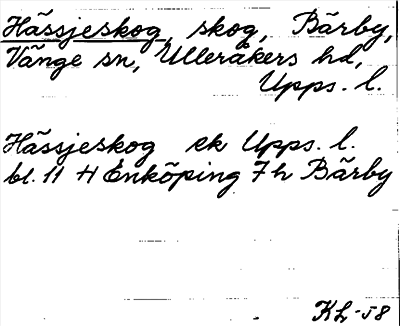 Hässjeskog, skog, Bärby,
Vänge sn, Ulleråkers hd,
Upps. l.
Hässjeskog ek Upps. l.
bl. 11 H Enköping 7h Bärby
KL-58